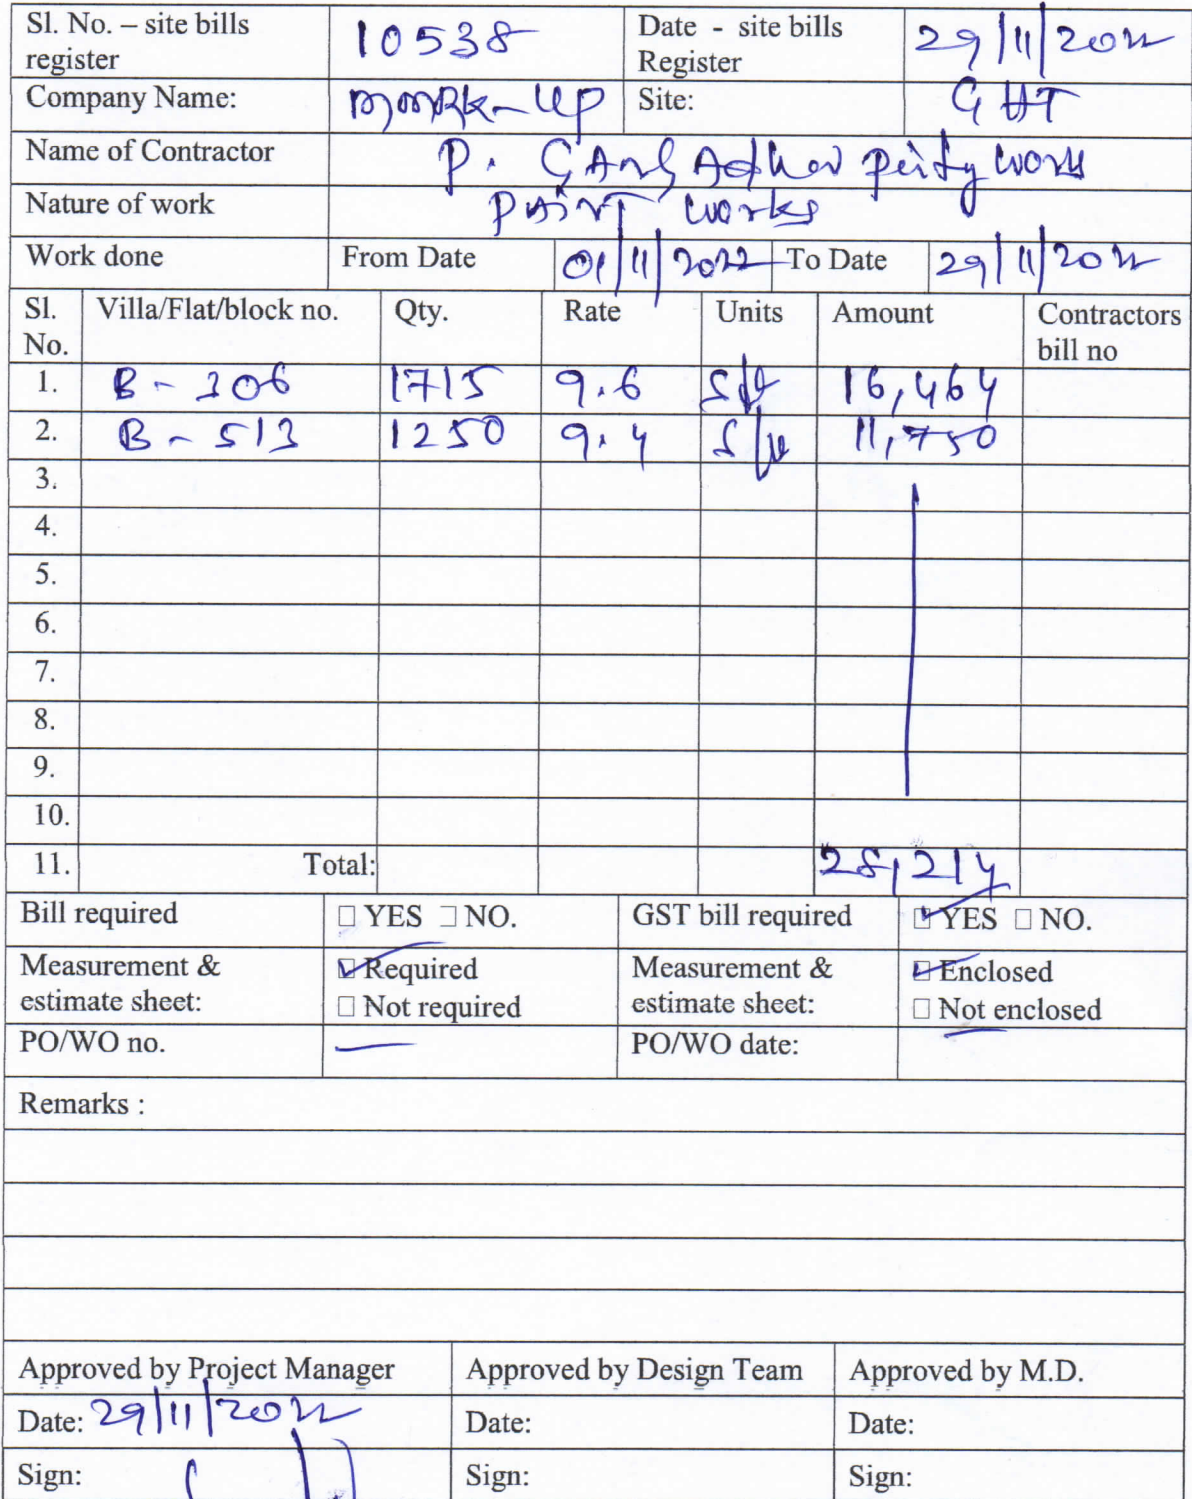 Sl. No. – site bills register 10538 Date - site bills Register 29/11/2022
Company Name: Site: GHT
Name of Contractor P. works
Nature of work Paint works
Work done From Date 01/11/2022 To Date 29/11/2022
Sl. No. Villa/Flat/block no. Qty. Rate Units Amount Contractors bill no
1. B - 306 1715 9.6 sft 16,464
2. B - 513 1250 9.4 sft 11,750
3.
4.
5.
6.
7.
8.
9.
10.
11. Total: 28,214
Bill required □ YES □ NO. GST bill required ☑ YES □ NO.
Measurement & estimate sheet: ☑ Required □ Not required Measurement & estimate sheet: ☑ Enclosed □ Not enclosed
PO/WO no. — PO/WO date:
Remarks :
Approved by Project Manager Approved by Design Team Approved by M.D.
Date: 29/11/2022 Date: Date:
Sign: Sign: Sign: